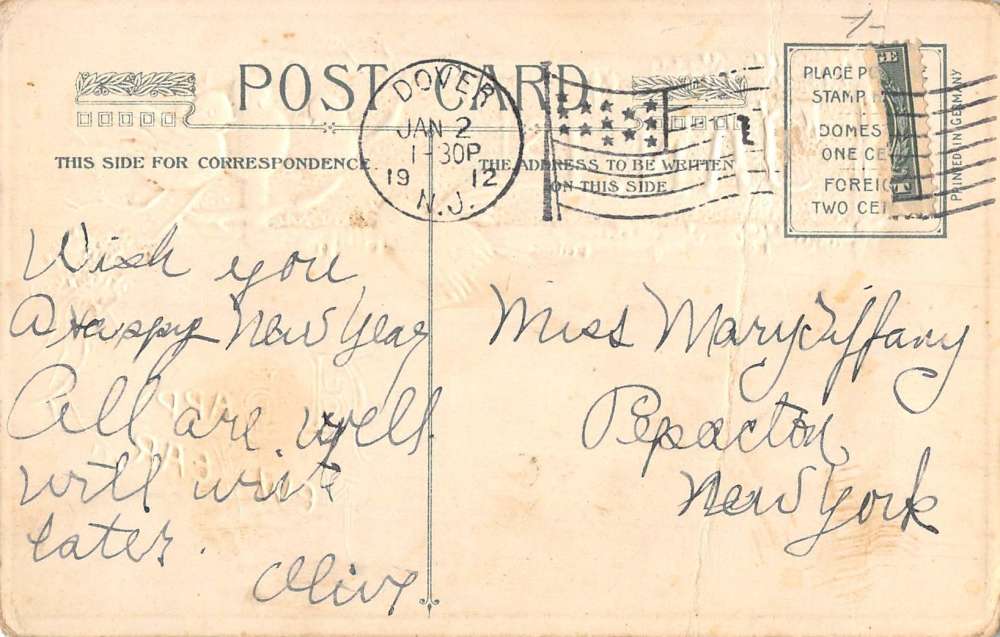 POST CARD
DOVER
JAN 2
1-30P
19 12
N.J.
THIS SIDE FOR CORRESPONDENCE
THE ADDRESS TO BE WRITTEN
ON THIS SIDE
PLACE
STAMP
DOMES
ONE CE
FOREIG
TWO CE
PRINTED IN GERMANY
Wish you
A Happy New Year
All are well
will write
later.
Olive
Miss Mary Tiffany
Pepacton
New York